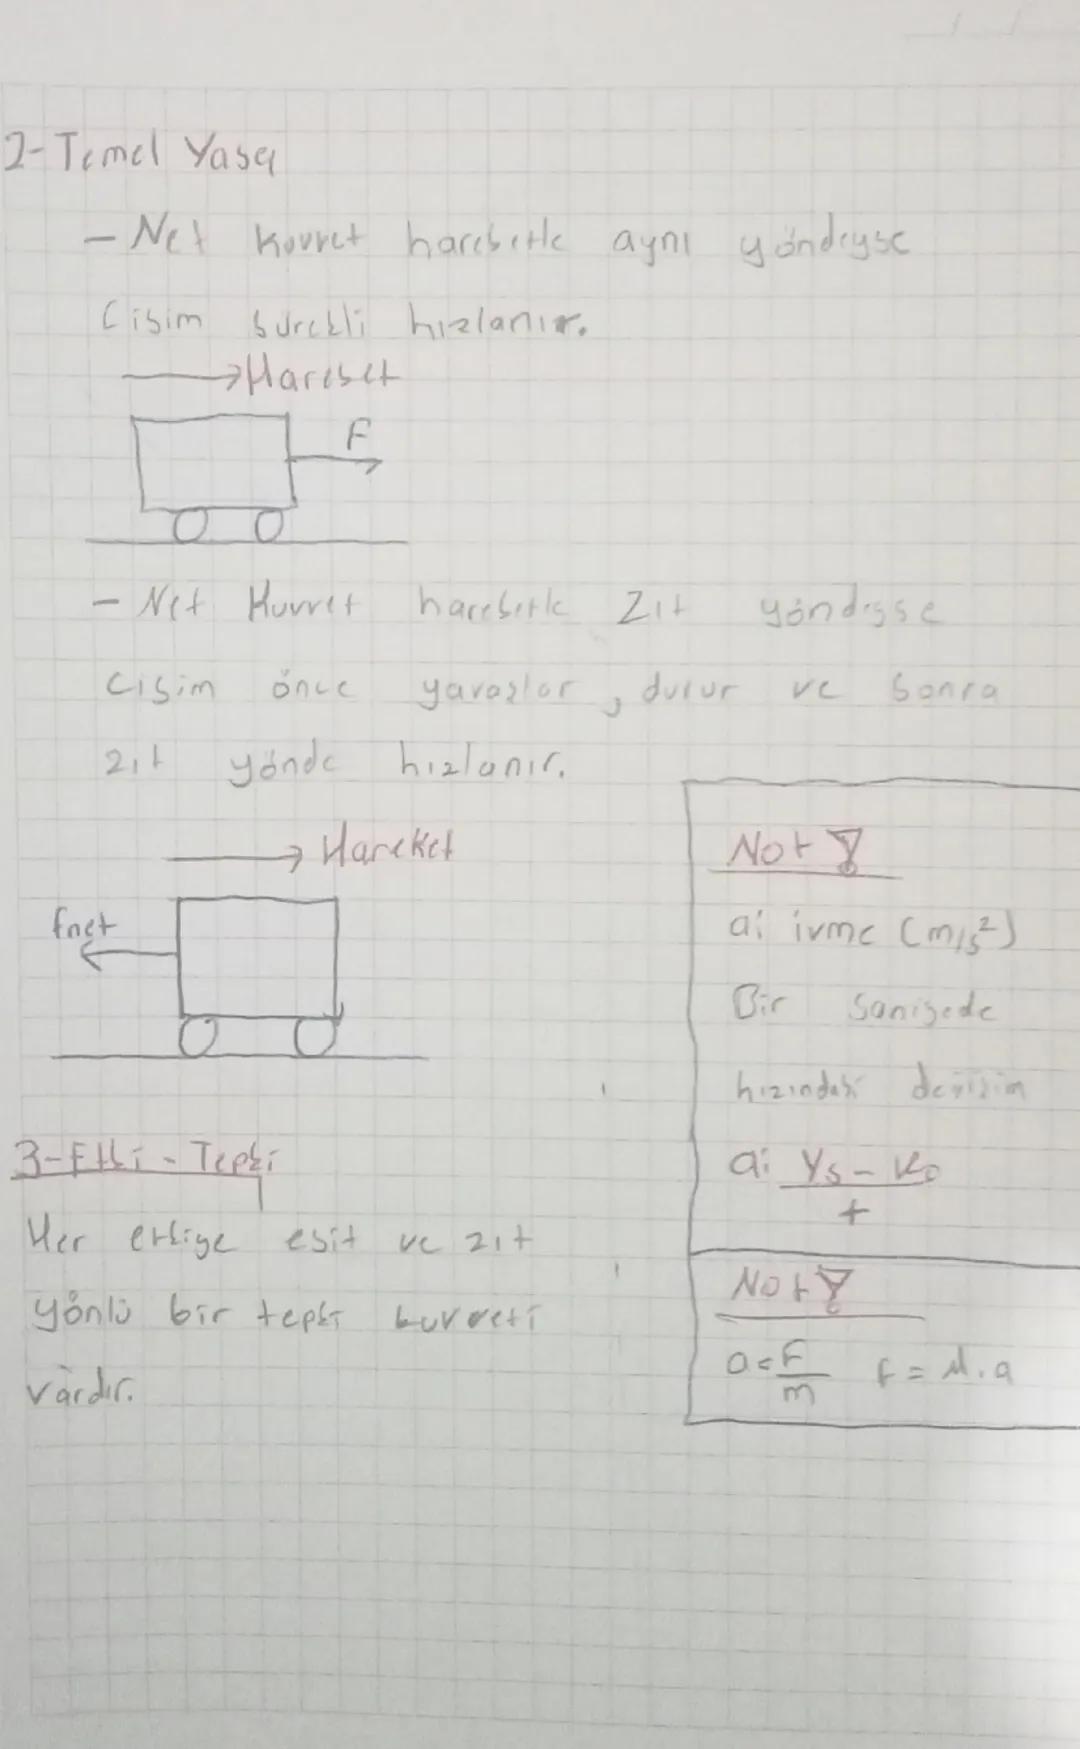 2-Temel Yasa
- Net kuvvet hareketle aynı yöndeyse
Cisim sürekli hızlanır.
Hareket
F
- Net Kuvvet hareketle Zıt yöndeyse
Cisim önce yavaşlar, durur ve sonra
zıt yönde hızlanır.
Hareket
Fnet
3-Etki - Tepki
Her etkiye eşit ve zıt
yönlü bir tepki kuvveti
vardır.
Not
a: ivme (m/s²)
Bir saniyede
hızındaki değişim
a:
Not
a = F/m F = M.a